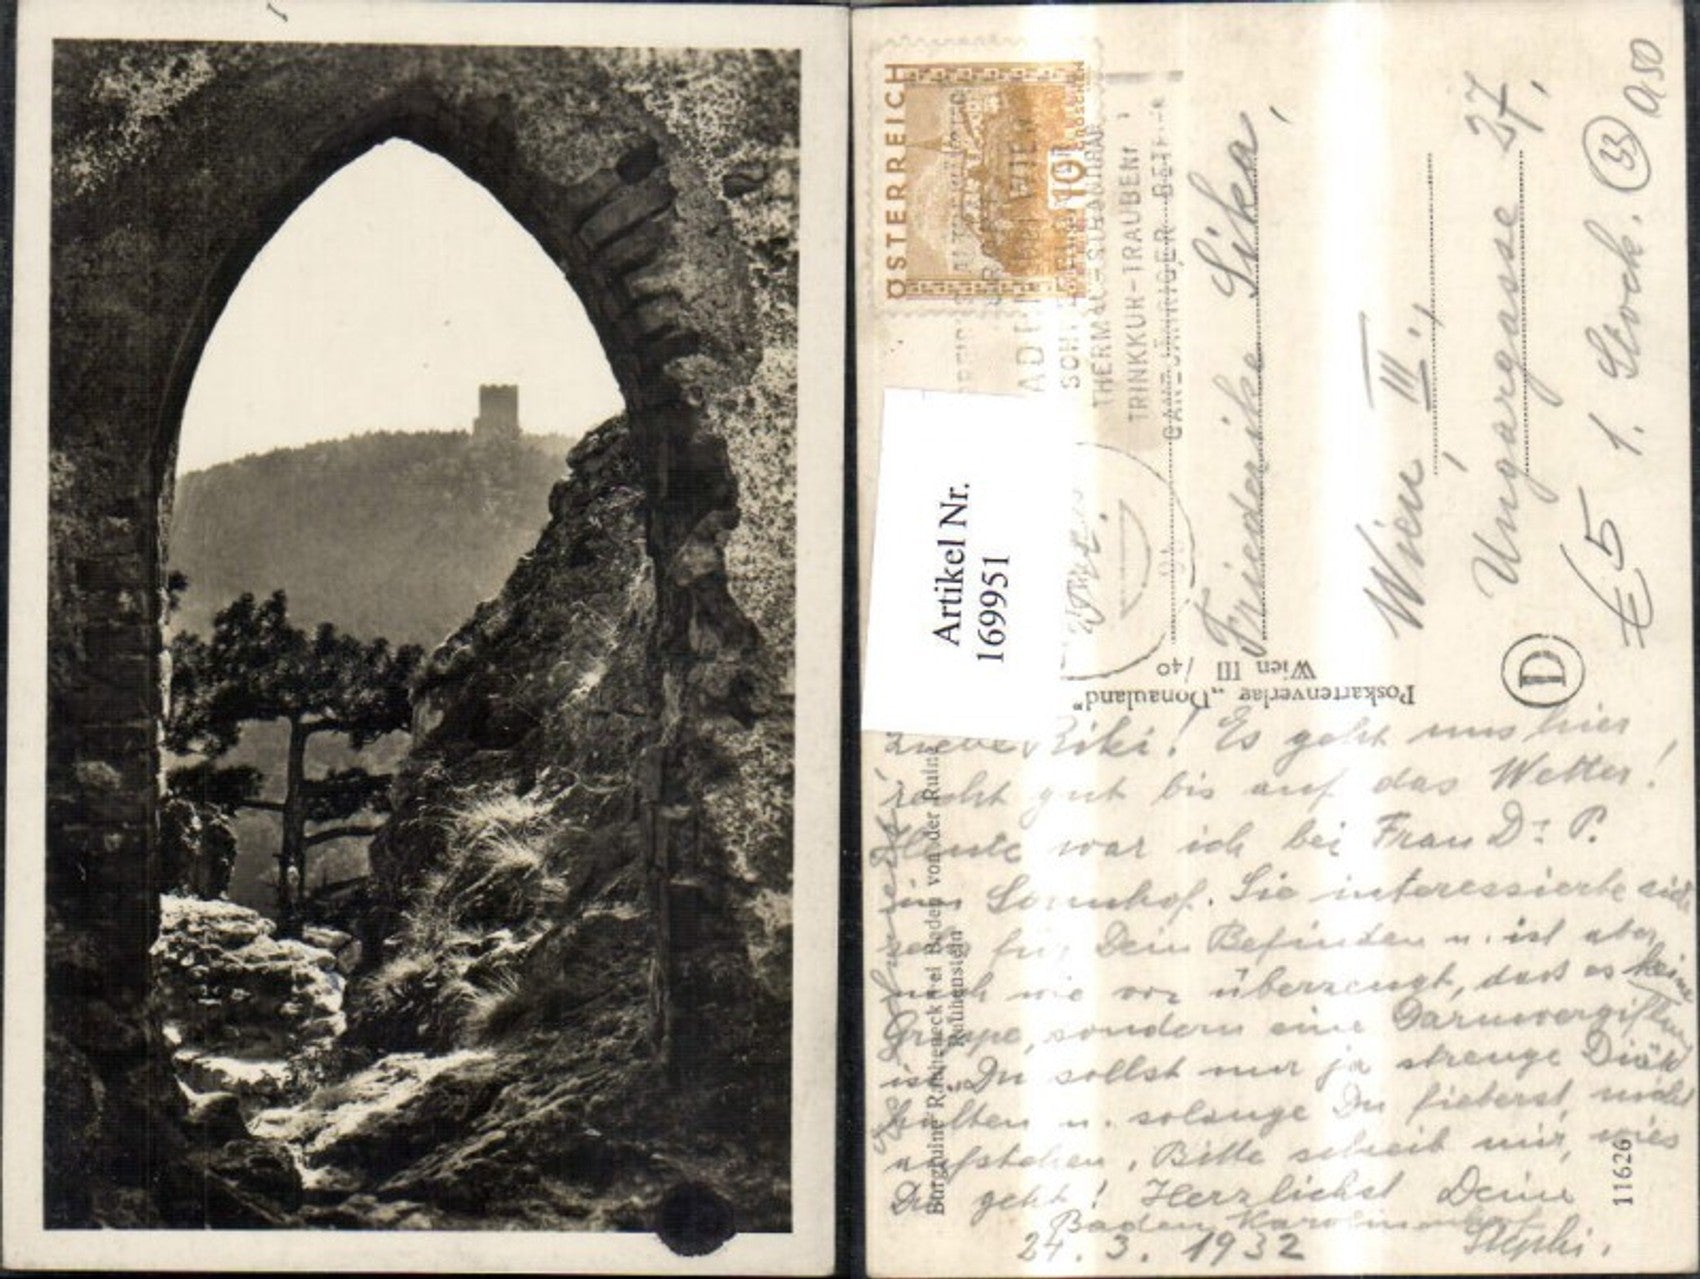 ÖSTERREICH
10
WIEN
THERMAL-STRANDBAD
TRINKKUR-TRAUBENK
GANZJÄHRIGER BETR
Artikel Nr.
169951
Friederike Sika,
Wien, III.,
Ungargasse 27,
1. Stock.
€ 5
33
0,50
D
Poskartenverlag „Donauland"
Wien III /40
Burgruine Rauheneck bei Baden von der Ruine
Rauhenstein
11626
Liebe Riki! Es geht uns hier
recht gut bis auf das Wetter!
Heute war ich bei Frau Dr. P.
im Sonnhof. Sie interessierte sich
sehr für Dein Befinden u. ist aber
nach wie vor überzeugt, dass es keine
Grippe, sondern eine Darmvergiftung
ist. Du sollst nur ja strenge Diät
halten u. solange Du fieberst, nicht
aufstehen. Bitte schreib mir, wies
Dir geht! Herzlichst Deine
Baden
24. 3. 1932 Stephi.